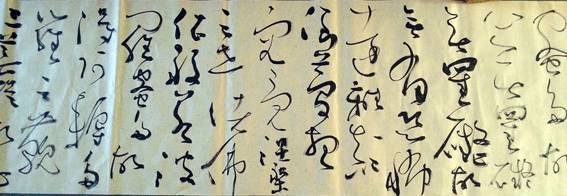 羅蜜多故
心無罣礙
無罣礙故
無有恐怖
遠離顛
倒夢想
究竟涅槃
三世諸佛
依般若波
羅蜜多故
得阿耨多
羅三藐